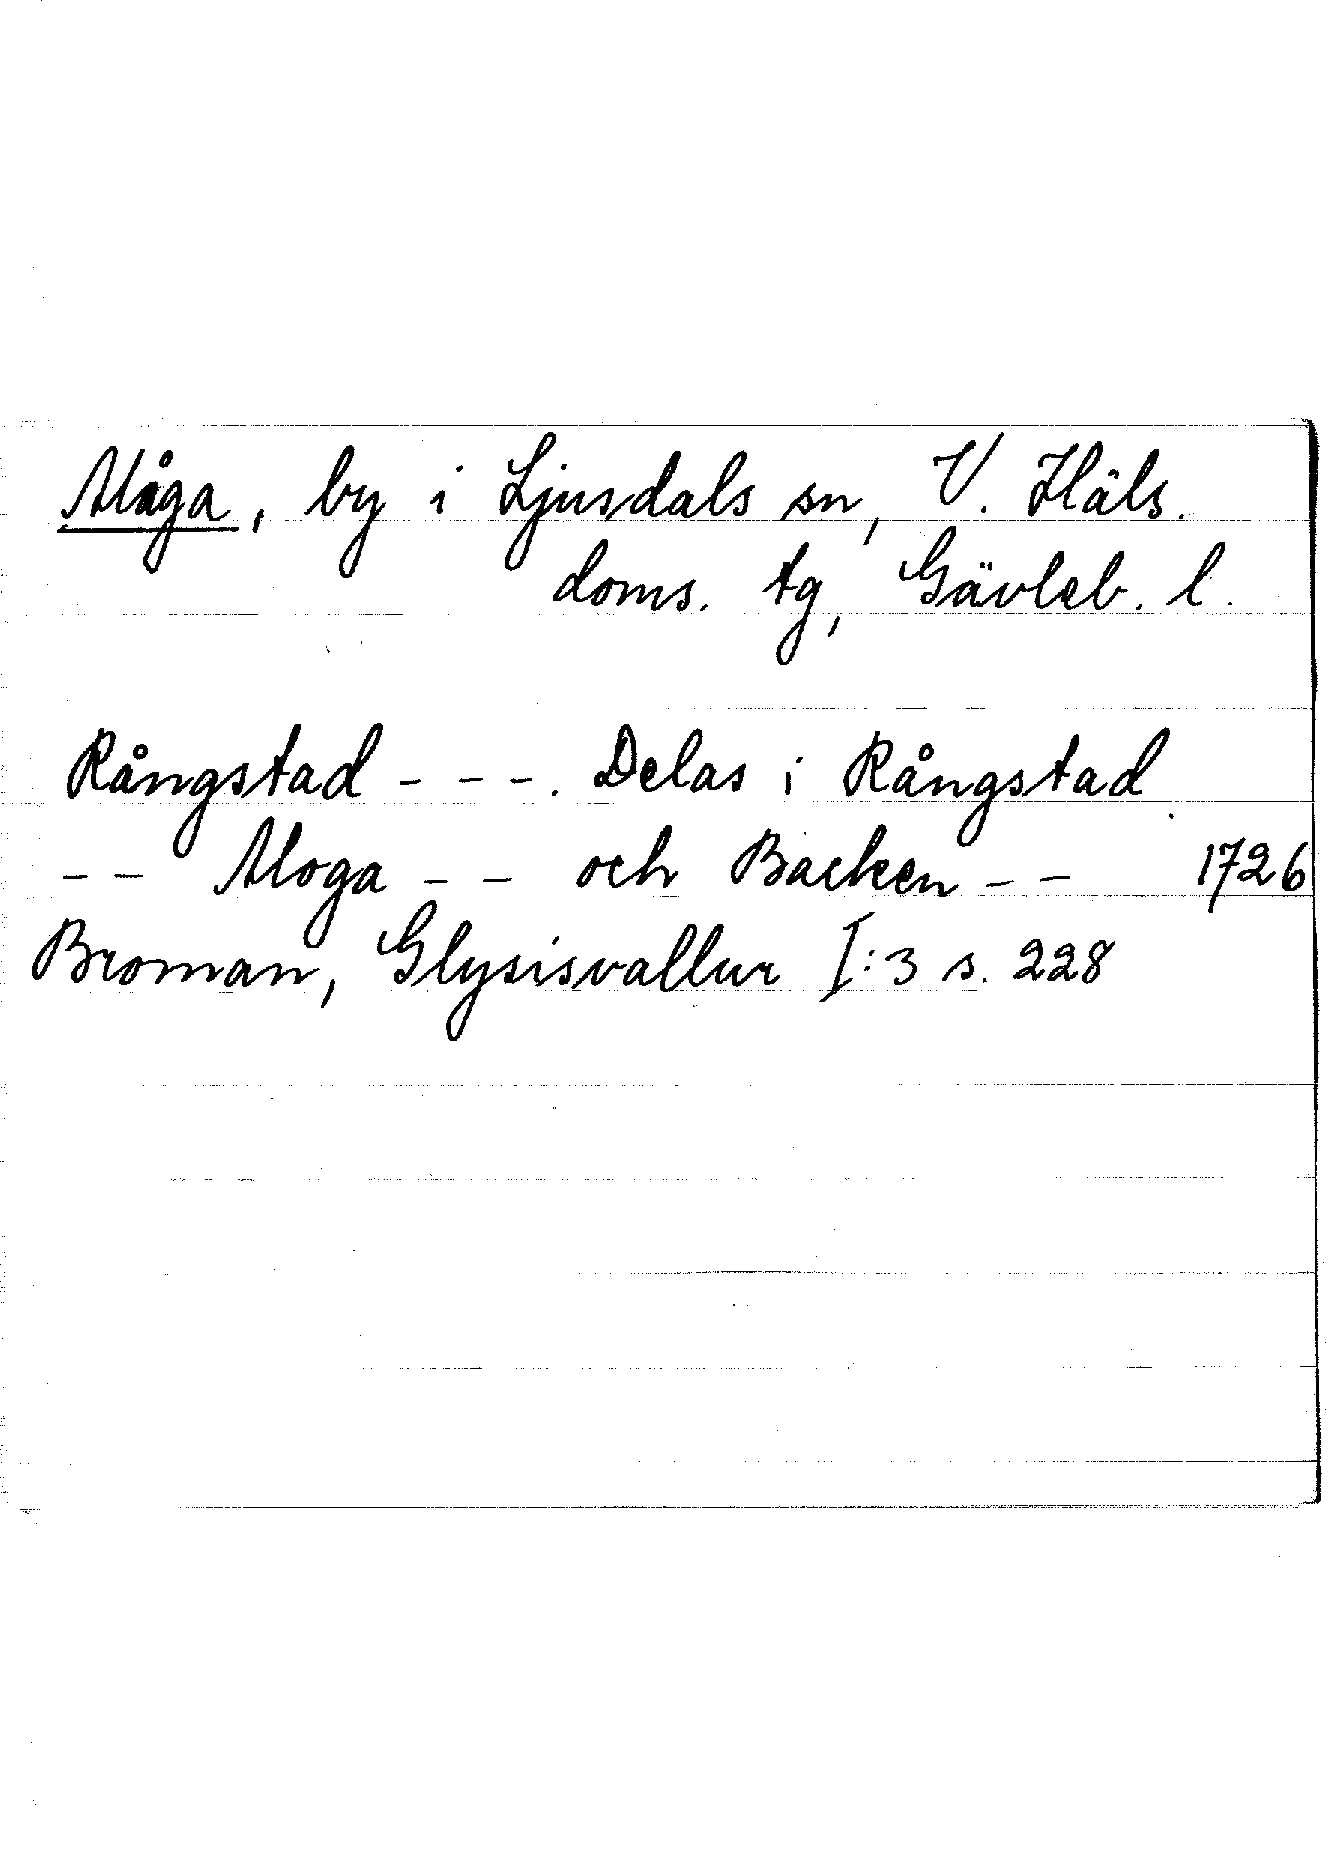 Måga, by i Ljusdals sn, V. Häls.
doms. tg, Gävleb. l.
Rångstad - - -. Delas i Rångstad
- - Moga - - och Backen - - 1726
Broman, Glysisvallur I:3 s. 228